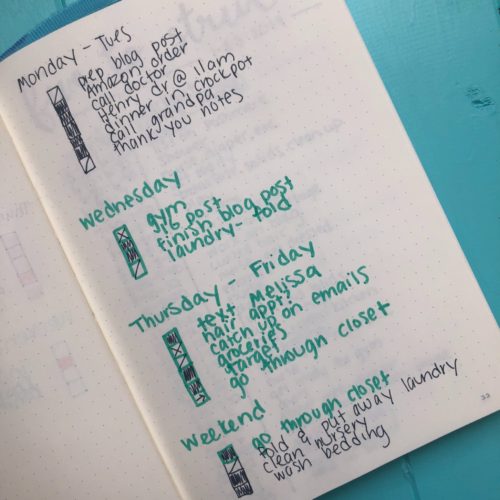 Monday - Tues
prep blog post
Amazon order
call doctor
Henry dr @ 11am
dinner in crockpot
call grandpa
thank you notes
Wednesday
gym
JTG post
finish blog post
laundry - fold
Thursday - Friday
text Melissa
hair appt?
catch up on emails
groceries
target
go through closet
Weekend
go through closet
fold & put away laundry
clean nursery
wash bedding